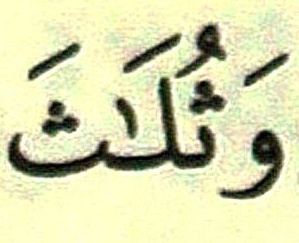 وَثُلَٰثَ